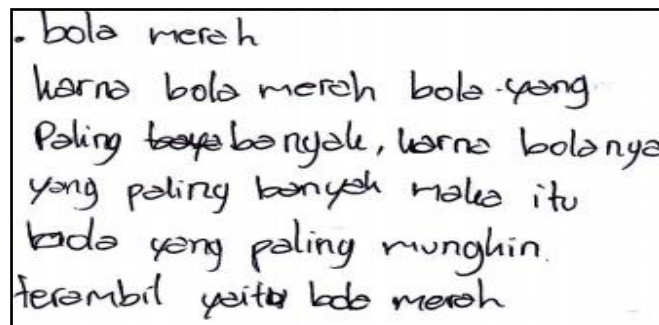 . bola merah
karna bola merah bola yang
Paling banyak, karna bolanya
yang paling banyak maka itu
bola yang paling mungkin.
terambil yaitu bola merah